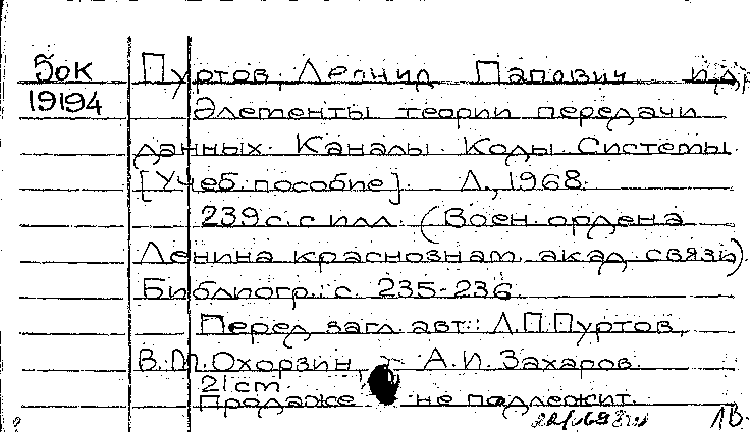 БоК Пуртов, Леонид Папович и др
19194 Элементы теории передачи
данных. Каналы. Коды. Системы.
[Учеб. пособие]. Л., 1968.
239 с. с илл. (Воен. ордена
Ленина краснознам. акад. связи).
Библиогр.: с. 235-236.
Перед загл. авт.: Л.П.Пуртов,
В.М.Охорзин, А.И.Захаров.
21 ст
Продаже не подлежит.
1В.